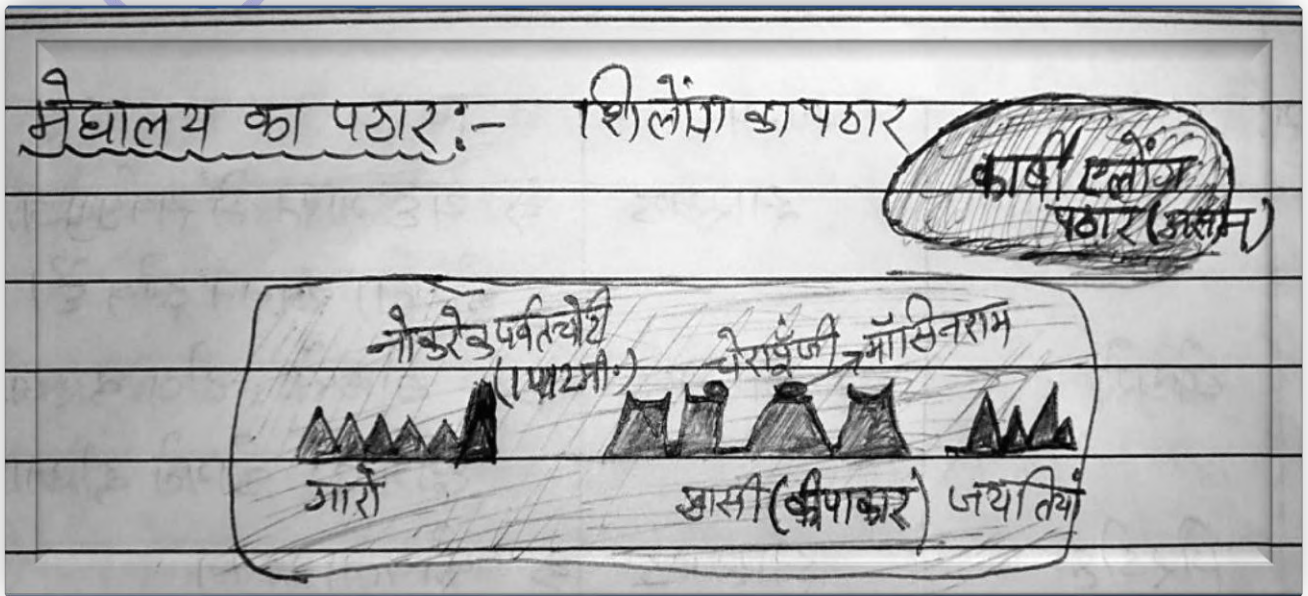 मेघालय का पठार :- शिलोंग का पठार
कार्बी एलोंग
पठार (असम)
नोकरेक पर्वतचोटी
चेरापूँजी मॉसिनराम
गारो
खासी (कीपाकार) जयंतियाँ